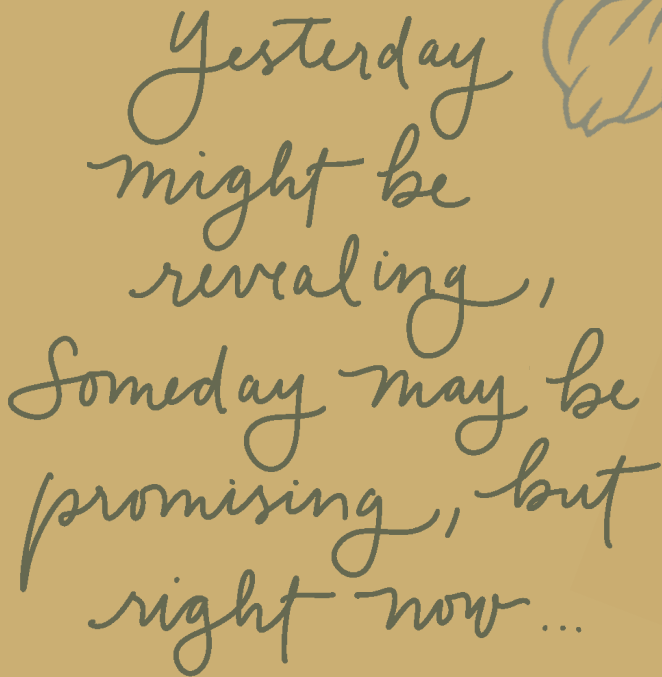 Yesterday
might be
revealing,
Someday may be
promising, but
right now...